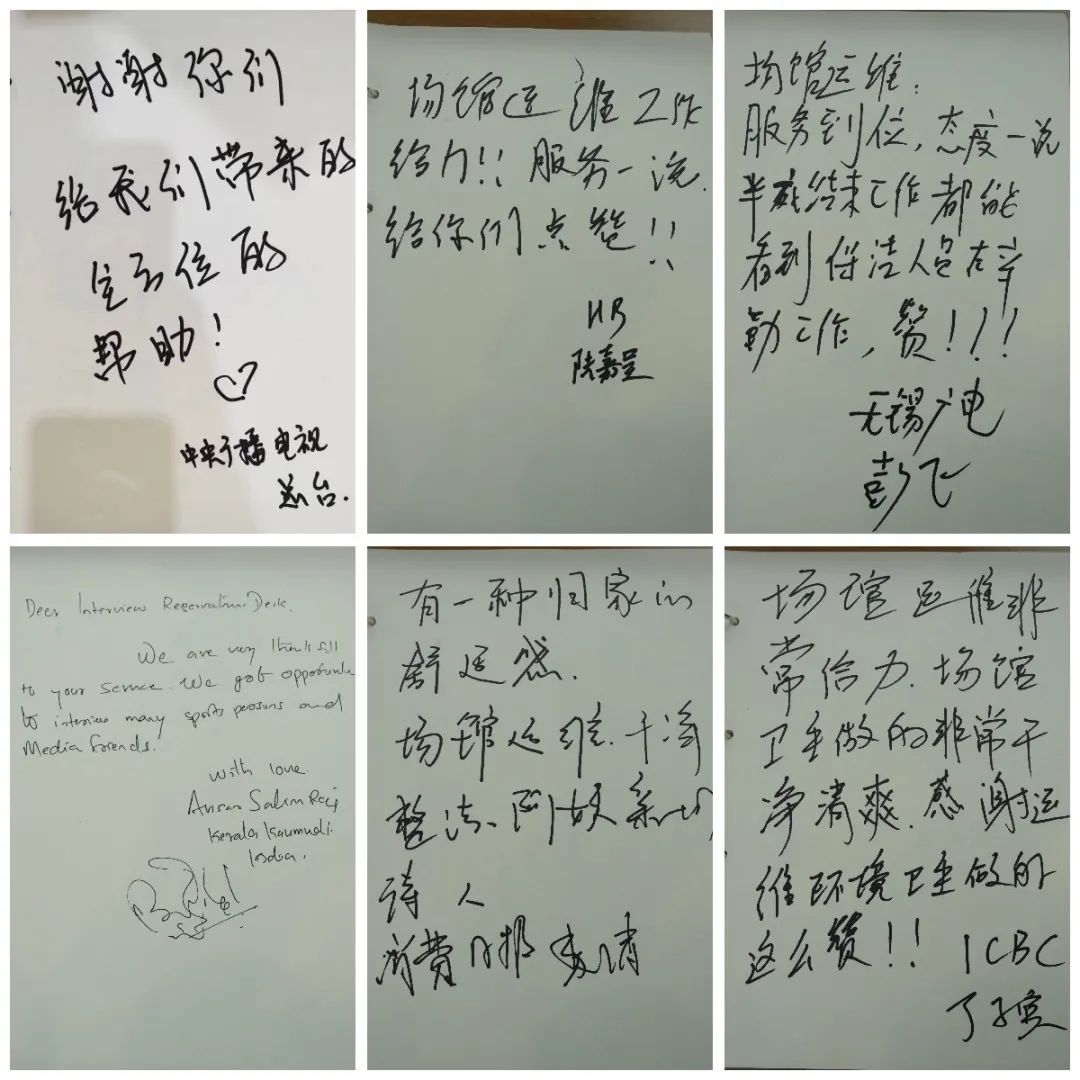 谢谢你们
给我们带来的
全方位的
帮助！
中央广播电视
总台.
场馆运维工作
给力!! 服务一流.
给你们点赞!!
HB
陆嘉呈
场馆运维:
服务到位,态度一流
半夜结束工作都能
看到保洁人员在辛
勤工作,赞!!!
无锡广电
彭飞
Dear Interview Reservation Desk,
We are very thankfull
to your service. We got opportunity
to interview many sports persons and
Media friends.
With love
Ansar Salim Raj
Kerala Kaumudi
India.
有一种归家的
舒适感.
场馆运维.干净
整洁、阿姨亲切,
诗人
消费日报
场馆运维非
常给力.场馆
卫生做的非常干
净清爽.感谢运
维环境卫生做的
这么赞!! ICBC
丁子宾